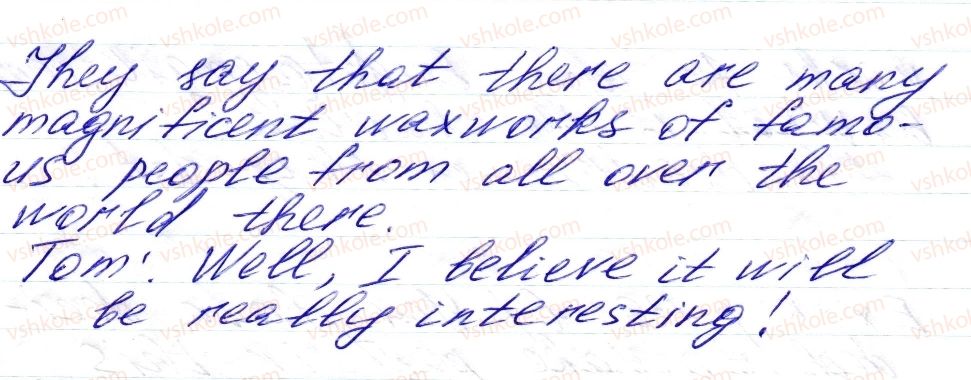 They say that there are many
magnificent waxworks of famo-
us people from all over the
world there.
Tom: Well, I believe it will
be really interesting!